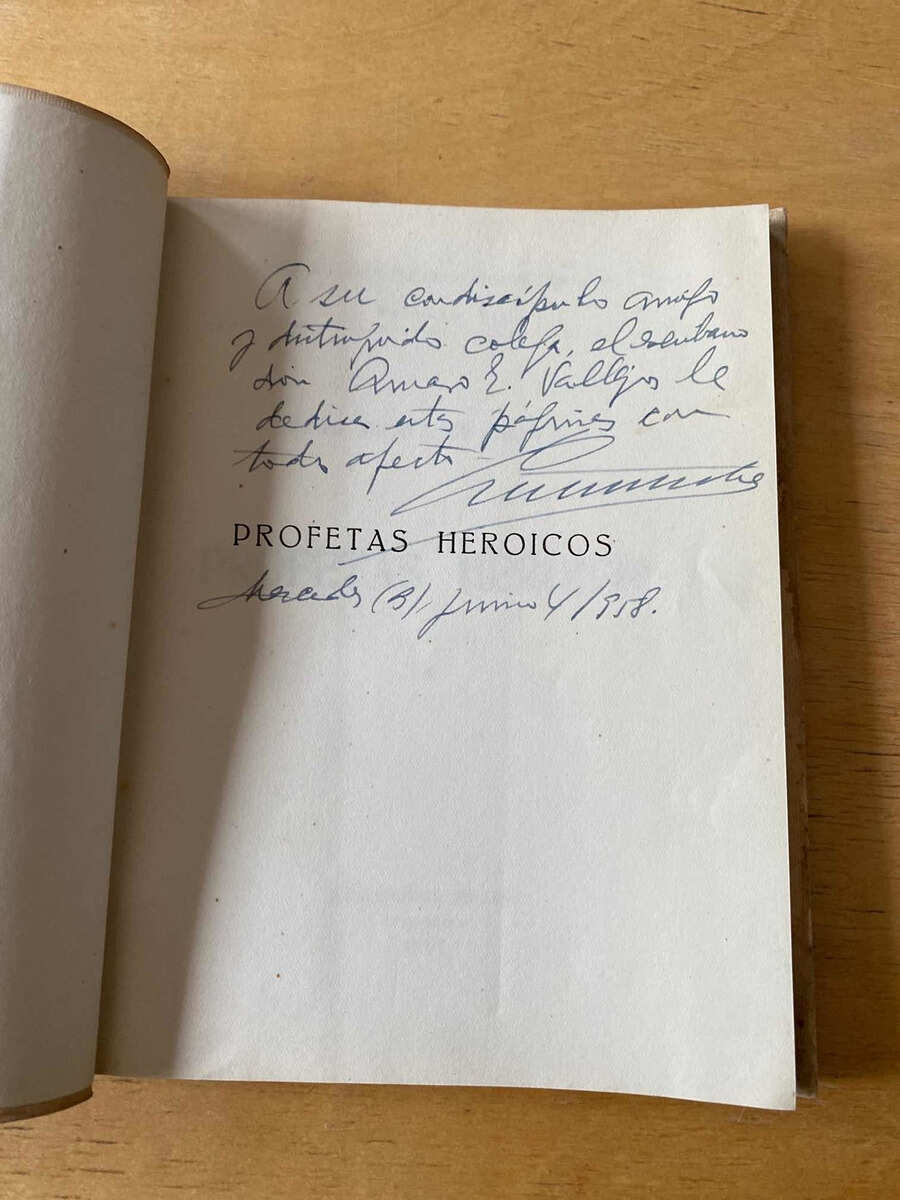 A su condiscípulo amigo
y distinguido colega, el escribano
don Amaro E. Vallejos le
dedica estas páginas con
todo afecto
PROFETAS HEROICOS
Mercedes (B), junio 4/958.